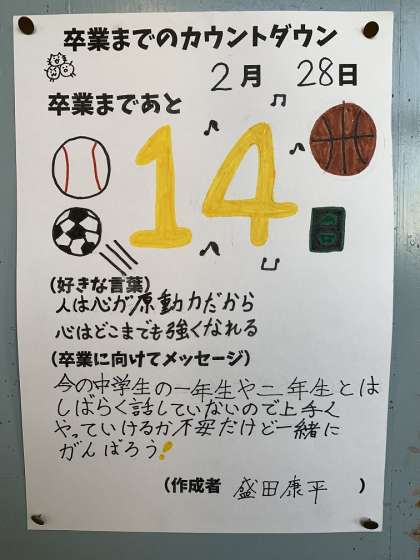 卒業までのカウントダウン
2月 28日
卒業まであと
14
(好きな言葉)
人は心が原動力だから
心はどこまでも強くなれる
(卒業に向けてメッセージ)
今の中学生の一年生や二年生とは
しばらく話していないので上手く
やっていけるか不安だけど一緒に
がんばろう!
(作成者 盛田康平 )